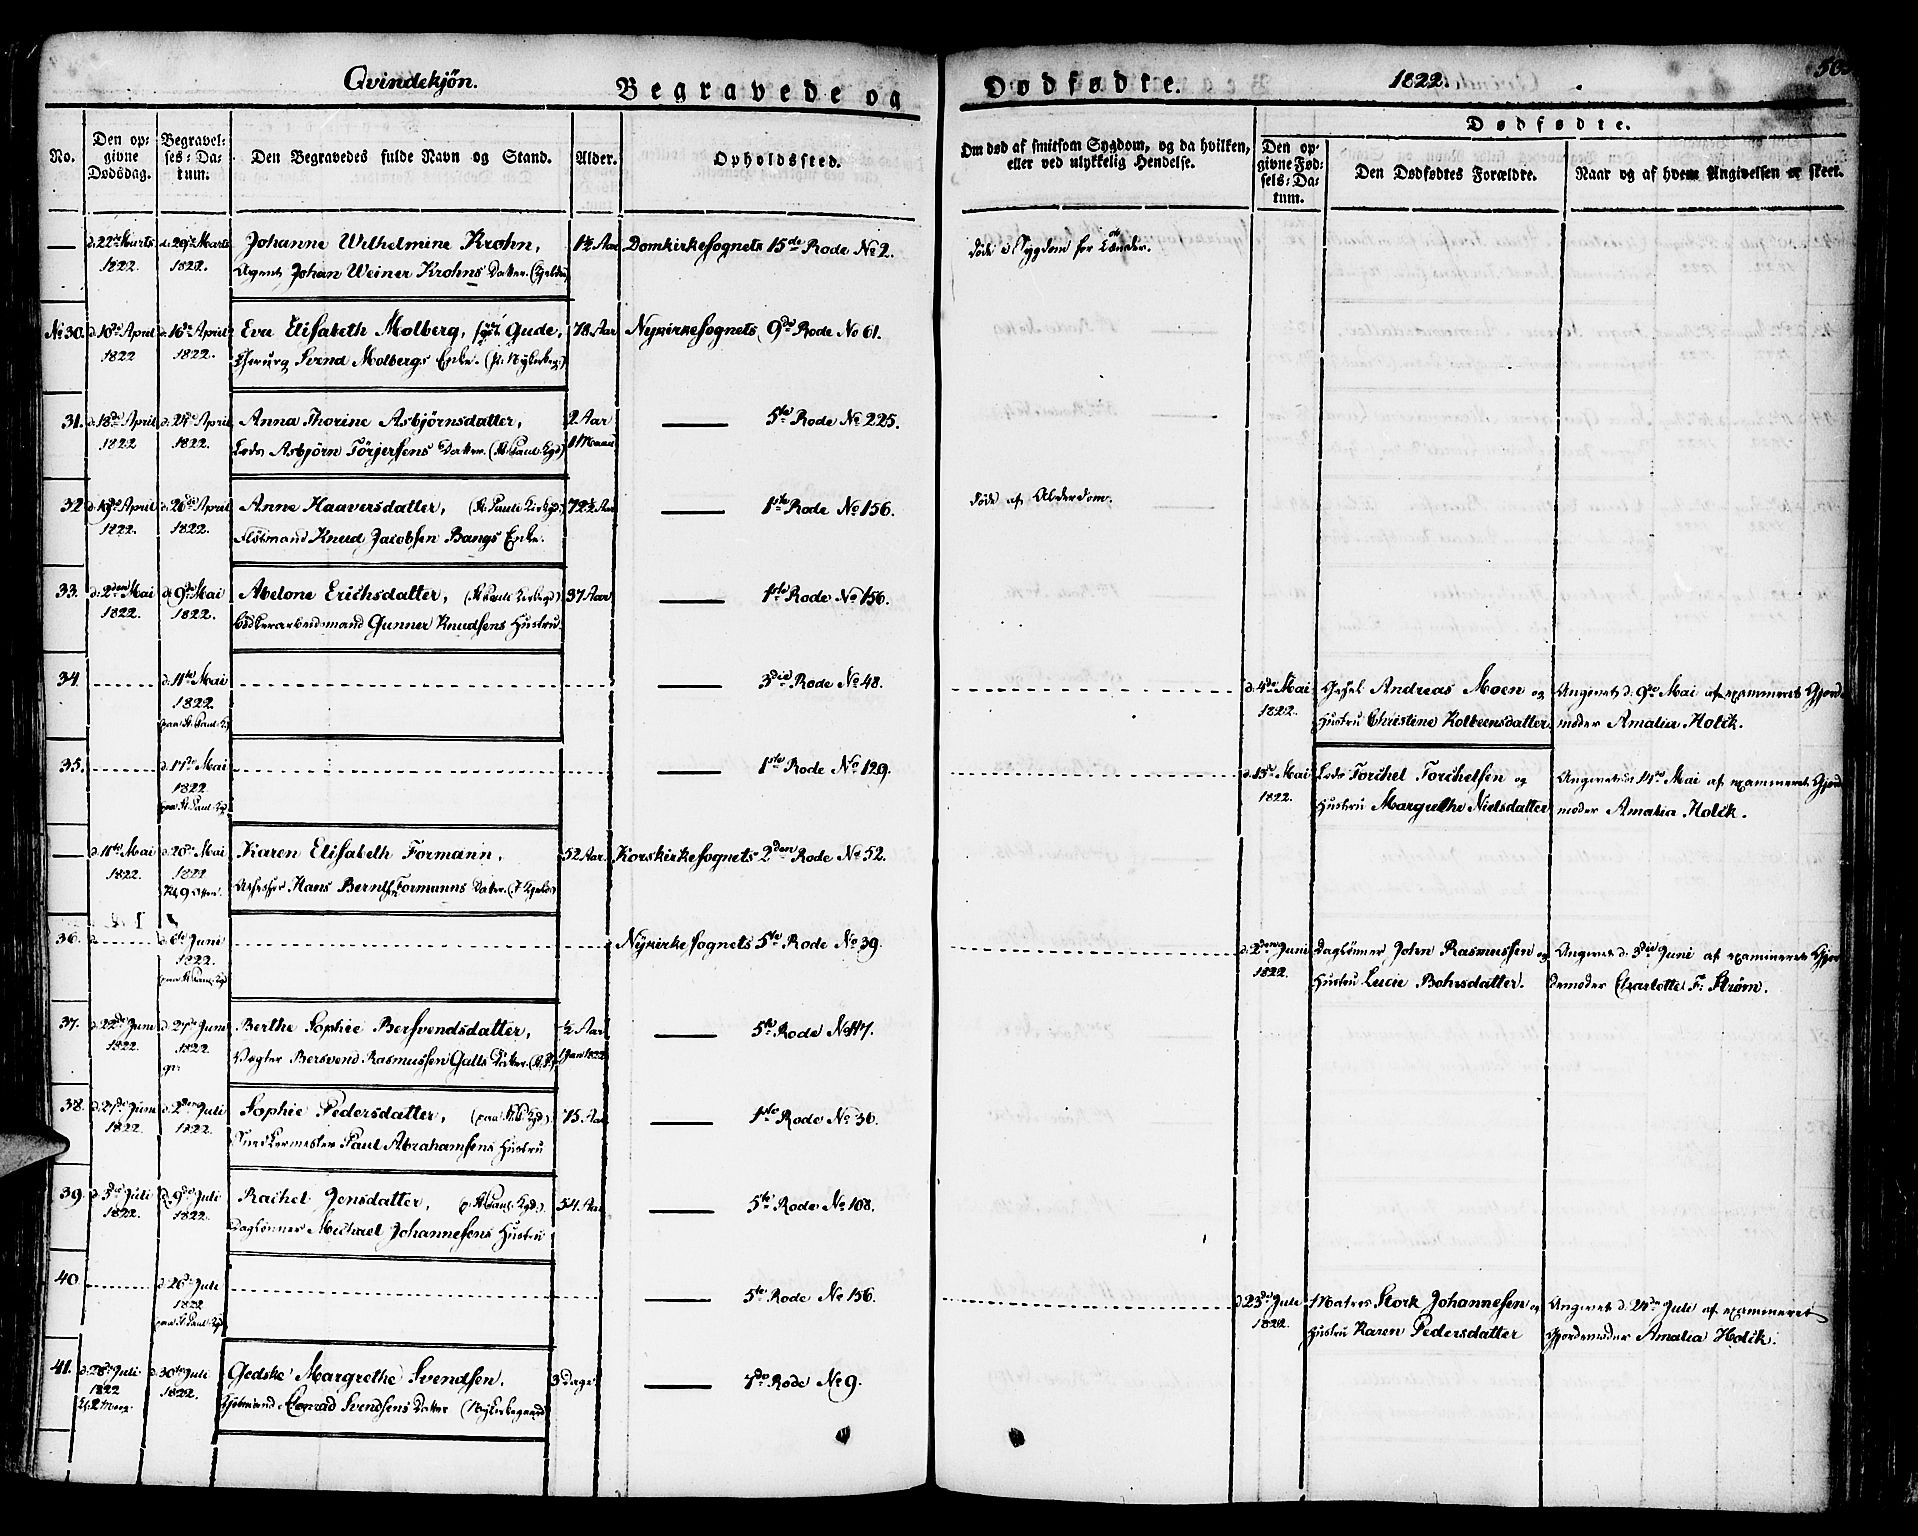 Qvindekjøn.
Begravede og Dødfødte.
1822.
No.
Den opgivne Dødsdag.
Begravelses-Datum.
Den Begravedes fulde Navn og Stand.
Alder.
Opholdssted.
Om død af smitsom Sygdom, og da hvilken,
eller ved ulykkelig Hendelse.
Dødfødte.
Den opgivne Fødsels-Datum.
Den Dødfødtes Forældre.
Naar og af hvem Angivelsen er skeet.
d: 22de Marts 1822. d. 29de Marts 1822. Johanne Wilhelmine Krohn, 1½ Aar Domkirkesognets 15de Rode No 2. døde af Sygdom for Tænder.
Agent Johan Weiner Krohns Datter.
No 30. d. 10de April 1822 d. 16de April 1822. Eva Elisabeth Molberg, født Gude, 78 Aar Nykirkesognets 9de Rode No 61.
Svend Molbergs Enke.
31. d. 18de April 1822 d. 24de April 1822. Anna Thorine Asbjørnsdatter, 2 Aar Maaned 5te Rode No 225.
Lods Asbjørn Törjersens Datter. (St. Pauli Kgd)
32 April 1822. d. 26de April 1822. Anne Haaversdatter, (St. Pauli Kirkgd) 72½ Aar 1ste Rode No 156. døde af Alderdom.
Flötmand Knud Jacobsen Bangs Enke.
33. d: 2den Mai 1822. d: 9de Mai 1822. Abelone Erichsdatter, (St. Pauli Kirkegd) 37 Aar 1ste Rode No 156.
Gunner Knudsens Hustru.
34. d. 11te Mai 1822. paa St. Paul. Kgd 3die Rode No 48. d: 4de Mai 1822. Andreas Moen og
Hustru Christine Kolbeensdatter. Angivet d. 9de Mai af examineret Gjordemoder Amalia Holck.
35. d. 17de Mai 1822 paa St. Paul. Kgd 1ste Rode No 129. d. 13de Mai 1822. Lods Torchel Torchelsen og
Hustru Margrethe Nielsdatter Angivet d. 14de Mai af examineret Gjordemoder Amalia Holck.
d. 11te Mai 1822. d. 20de Mai 1822 Karen Elisabeth Formann, 52 Aar. Korskirkesognets 2den Rode No 52.
Hans Berntsen Formanns Datter.
36. d. 6te Juni 1822. paa St. Paul. Kgd Nykirkesognets 5te Rode No 39. d. 2den Juni 1822. Daglönner John Rasmussen og
Hustru Lucie Bohrsdatter. Angivet d. 3die Juni af examineret Gjordemoder Charlotte F. Strøm.
37. d. 22de Juni 1822. d. 27de Juni 1822. Berthe Sophie Bersvendsdatter, ½ Aar 5te Rode No 117.
Vægter Bersvend Rasmussen Galts Datter.
38. d. 27de Juni 1822. d. 2den Juli 1822. Sophie Pedersdatter, (paa St. P. Kgd) 75 Aar 1ste Rode No 30.
Snedkermester Paul Abrahamsens Hustru
39. d. 3die Juli 1822. d. 9de Juli 1822. Rachel Jensdatter, (St. Paul. Kgd.) 54 Aar 5te Rode No 108.
Daglönner Michael Johannesens Hustru
40. d. 26de Juli 1822 paa St. Paul. Kgd 5te Rode No 156. d. 23de Juli 1822. Matros Stork Johannesen og
Hustru Karen Pedersdatter Angivet d. 24de Juli af examineret
Gjordemoder Amalia Holck.
41. d. 28de Juli 1822 d. 30te Juli 1822. Gedske Margrethe Svendsen. 3 Dage. 4de Rode No 9.
Conrad Svendsens Datter (Nykirkegaard)